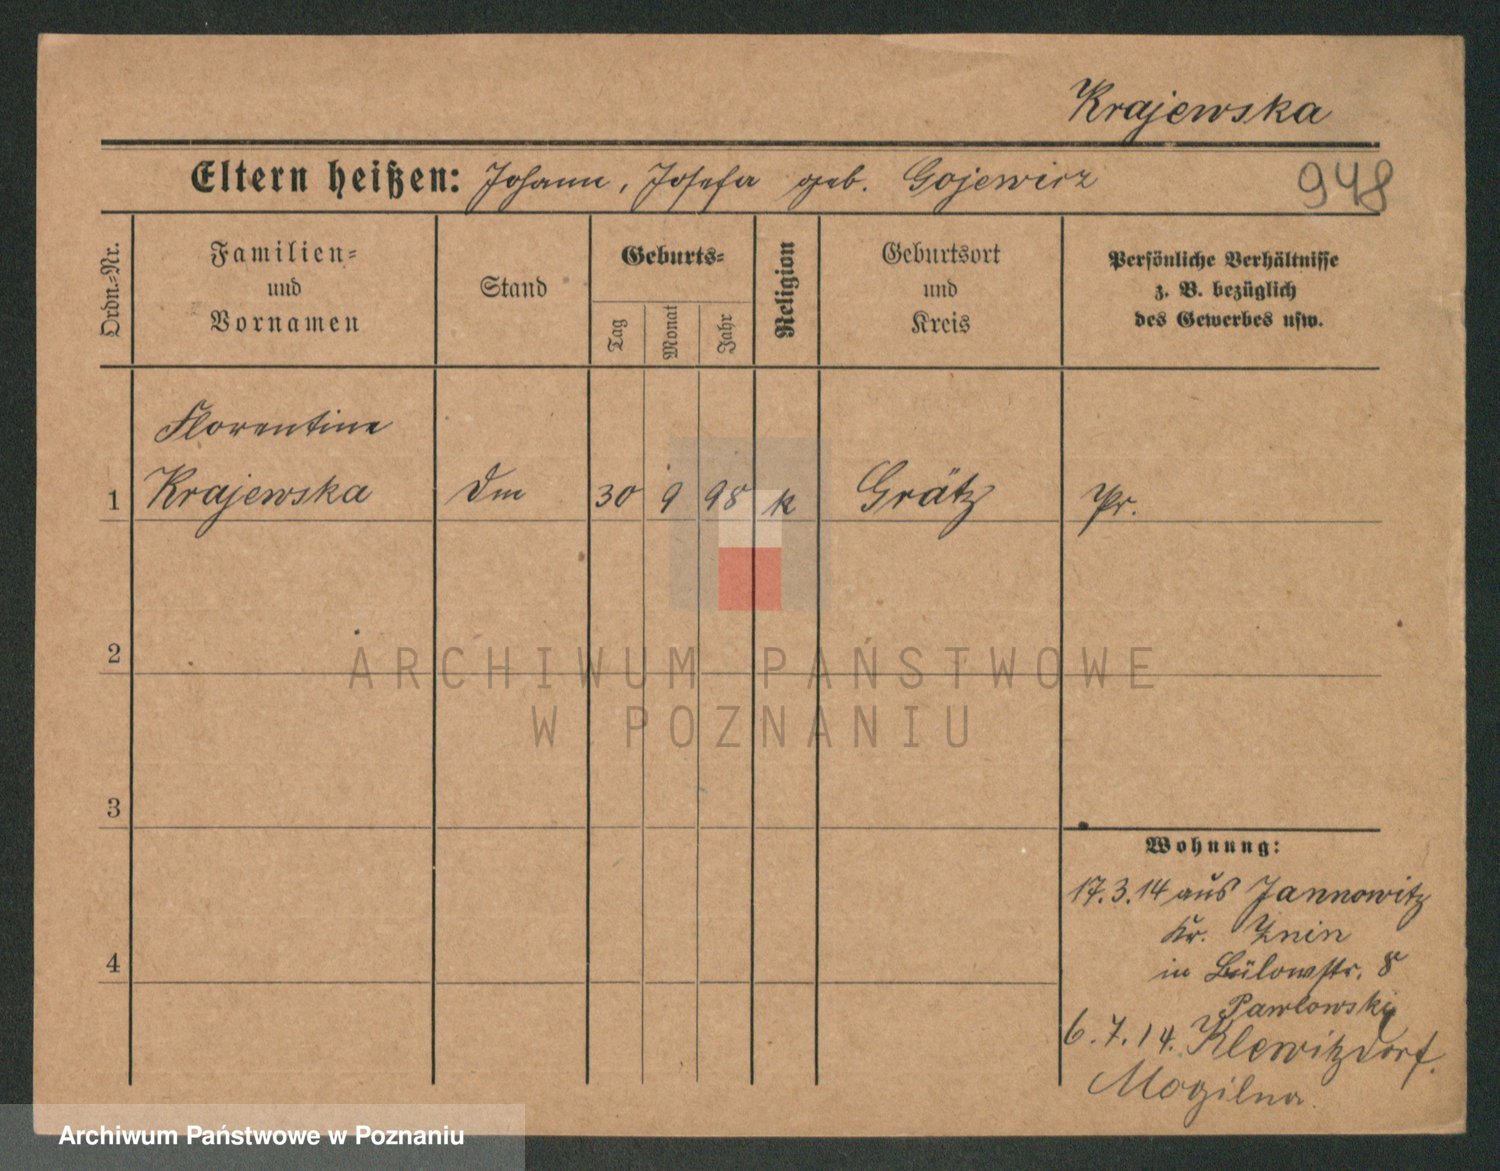 Krajewska
Eltern heißen: Johann, Josefa geb. Gojewicz
948
Ordn.-Nr.
Familien=
und
Vornamen
Stand
Geburts=
Tag
Monat
Jahr
Religion
Geburtsort
und
Kreis
Persönliche Verhältnisse
z. B. bezüglich
des Gewerbes usw.
Florentine
1 Krajewska Dm 30 9 98 k Grätz Pr.
2
ARCHIWUM PAŃSTWOWE
W POZNANIU
3
Wohnung:
17.3.14 aus Jannowitz
Kr. Znin
4
in Bülowstr. 8
Pawlowski
6.7.14. Klewitzdorf.
Mogilno.
Archiwum Państwowe w Poznaniu